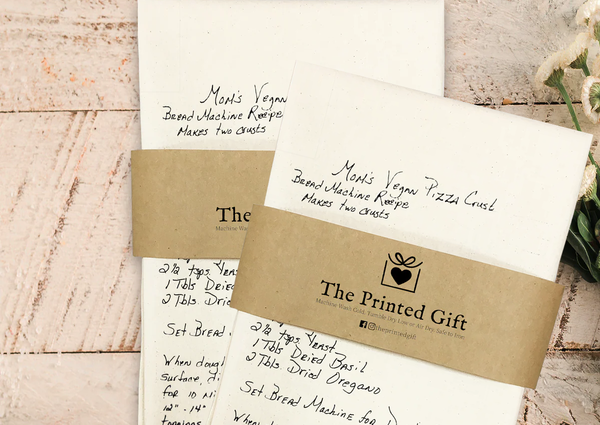 Mom's Vegan
Bread Machine Recipe
Makes two crusts
The
Machine Wash
2½ tsps. Yeast
1 Tbls Dried
2 Tbls. Dric
Set Bread
When doug
Surface, di
for 10 Mi
12" - 14"
toppings
Mom's Vegan Pizza Crust
Bread Machine Recipe
Makes two crusts
The Printed Gift
Machine Wash Cold, Tumble Dry Low or Air Dry, Safe to Iron
@theprintedgift
2½ tsps. Yeast
1 Tbls Dried Basil
2 Tbls. Dried Oregano
Set Bread Machine for D
When